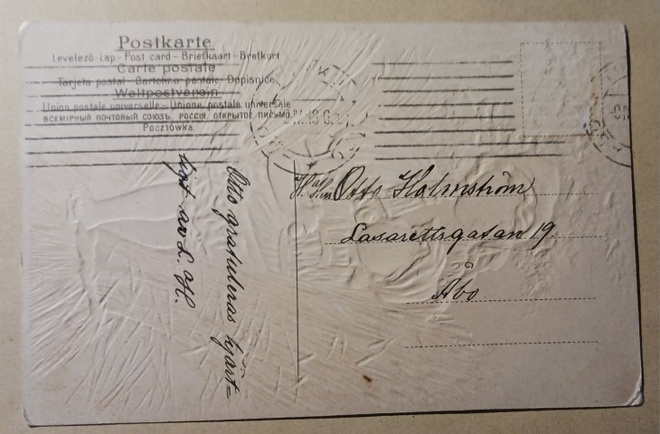 Postkarte
Levelező-Lap - Post card - Briefkaart - Brefkort
Carte postale
Tarjeta postal - Cartolina postale, Dopisnice
Weltpostverein
Union postale universelle - Unione postale universale
ВСЕМІРНЫЙ ПОЧТОВЫЙ СОЮЗЪ. РОССІЯ. ОТКРЫТОЕ ПИСЬМО.
Pocztówka.
Otto Holmström
Lasarettsgatan 19
Åbo
Otto gratuleras hjärt=
ligt av L. H.